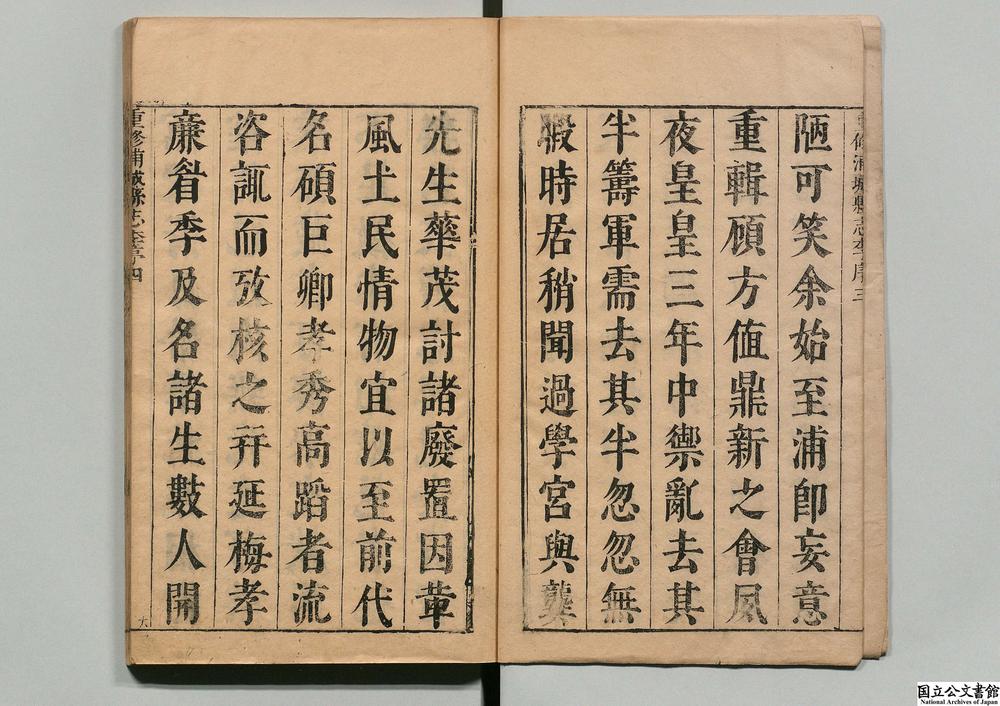 重修浦城縣志李序三
陋可笑余始至浦卽妄意
重輯顧方値鼎新之會夙
夜皇皇三年中禦亂去其
半籌軍需去其半忽忽無
暇時居稍聞過學宮與龔
先生華茂討諸廢置因蕐
風土民情物宜以至前代
名碩巨卿孝秀高蹈者流
咨諏而攷核之幷延梅孝
亷眘季及名諸生數人開
重修浦城縣志李序四
国立公文書館
National Archives of Japan